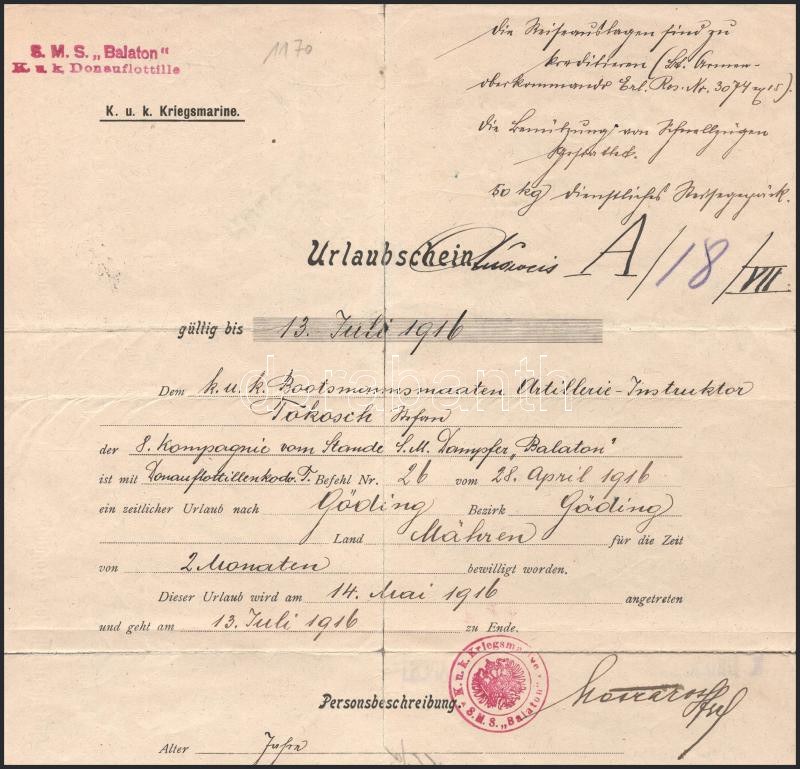 S. M. S. „Balaton"
K. u. k. Donauflottille
1170
K. u. k. Kriegsmarine.
Die Reiseauslagen sind zu
kreditieren (Lt. Armee-
oberkommando Erl. Res. Nr. 3074 ex 15).
Die Benützung von Schnellzügen
gestattet.
50 kg dienstliches Reisegepäck.
Urlaubschein
A/18/VII
gültig bis 13. Juli 1916
Dem k. u. k. Bootsmannsmaaten Artillerie-Instruktor
Tokosch Stefan
der 8. Kompagnie vom Stande S. M. Dampfer „Balaton"
ist mit Donauflottillenkodo. T. Befehl Nr. 26 vom 28. April 1916
ein zeitlicher Urlaub nach Göding Bezirk Göding
Land Mähren für die Zeit
von 2 Monaten bewilligt worden.
Dieser Urlaub wird am 14. Mai 1916 angetreten
und geht am 13. Juli 1916 zu Ende.
K. u. k. Kriegsmarine
S. M. S. „Balaton"
Personsbeschreibung.
Alter Jahre
darabanth